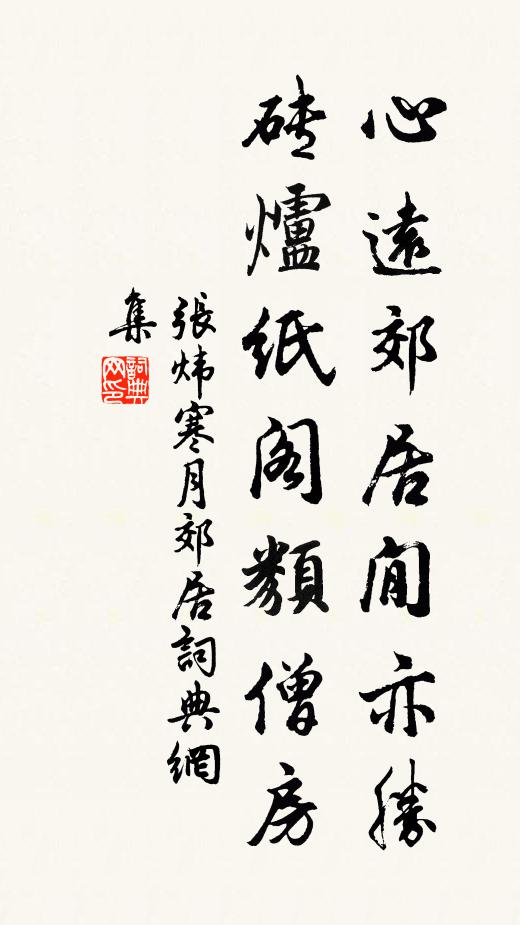 心遠郊居閒亦勝
砖爐紙閣類僧房
張炜寒月郊居詞典網
集
詞典網印